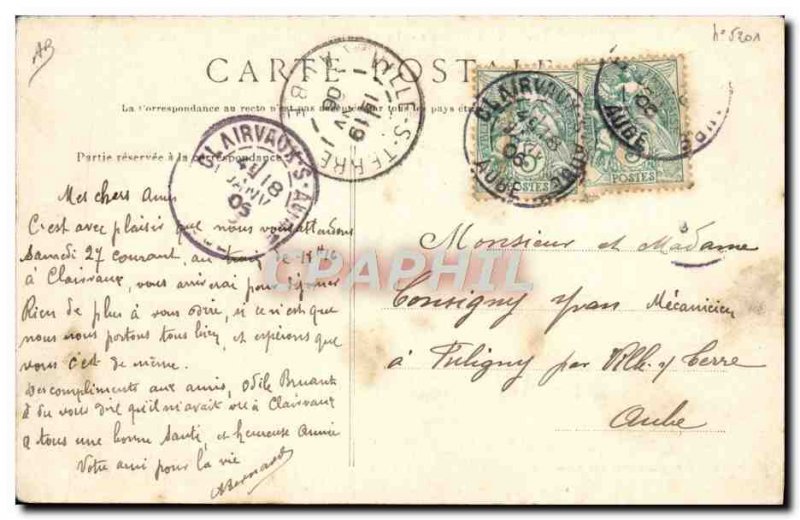 AB
n° 5201
CARTE POSTALE
La Correspondance au recto n'est pas acceptée par tous les pays étr
Partie réservée à la correspondance
CLAIRVAUX-S-AUBE
4E 18
JANV
06
VILLE-S-TERRE
AUBE
19
JANV
06
CLAIRVAUX-S-AUBE
4E 18
06
AUBE
POSTES
5
POSTES
CPAPHIL
Mes chers Amis
C'est avec plaisir que nous vous attendons
Samedi 27 courant, au train de 11h
à Clairvaux, vous arriverai pour déjeuner
Rien de plus à vous dire, si ce n'est que
nous nous portons tous bien, et espérons que
vous c'est de même.
Des compliments aux amis, Odile Bruant
a du vous dire qu'il m'avait vu à Clairvaux
a tous une bonne Santé, et heureuse Année
Votre ami pour la vie
ABernard
Monsieur et Madame
Consigny Yvan Mécanicien
à Fuligny par Ville s/ Terre
Aube